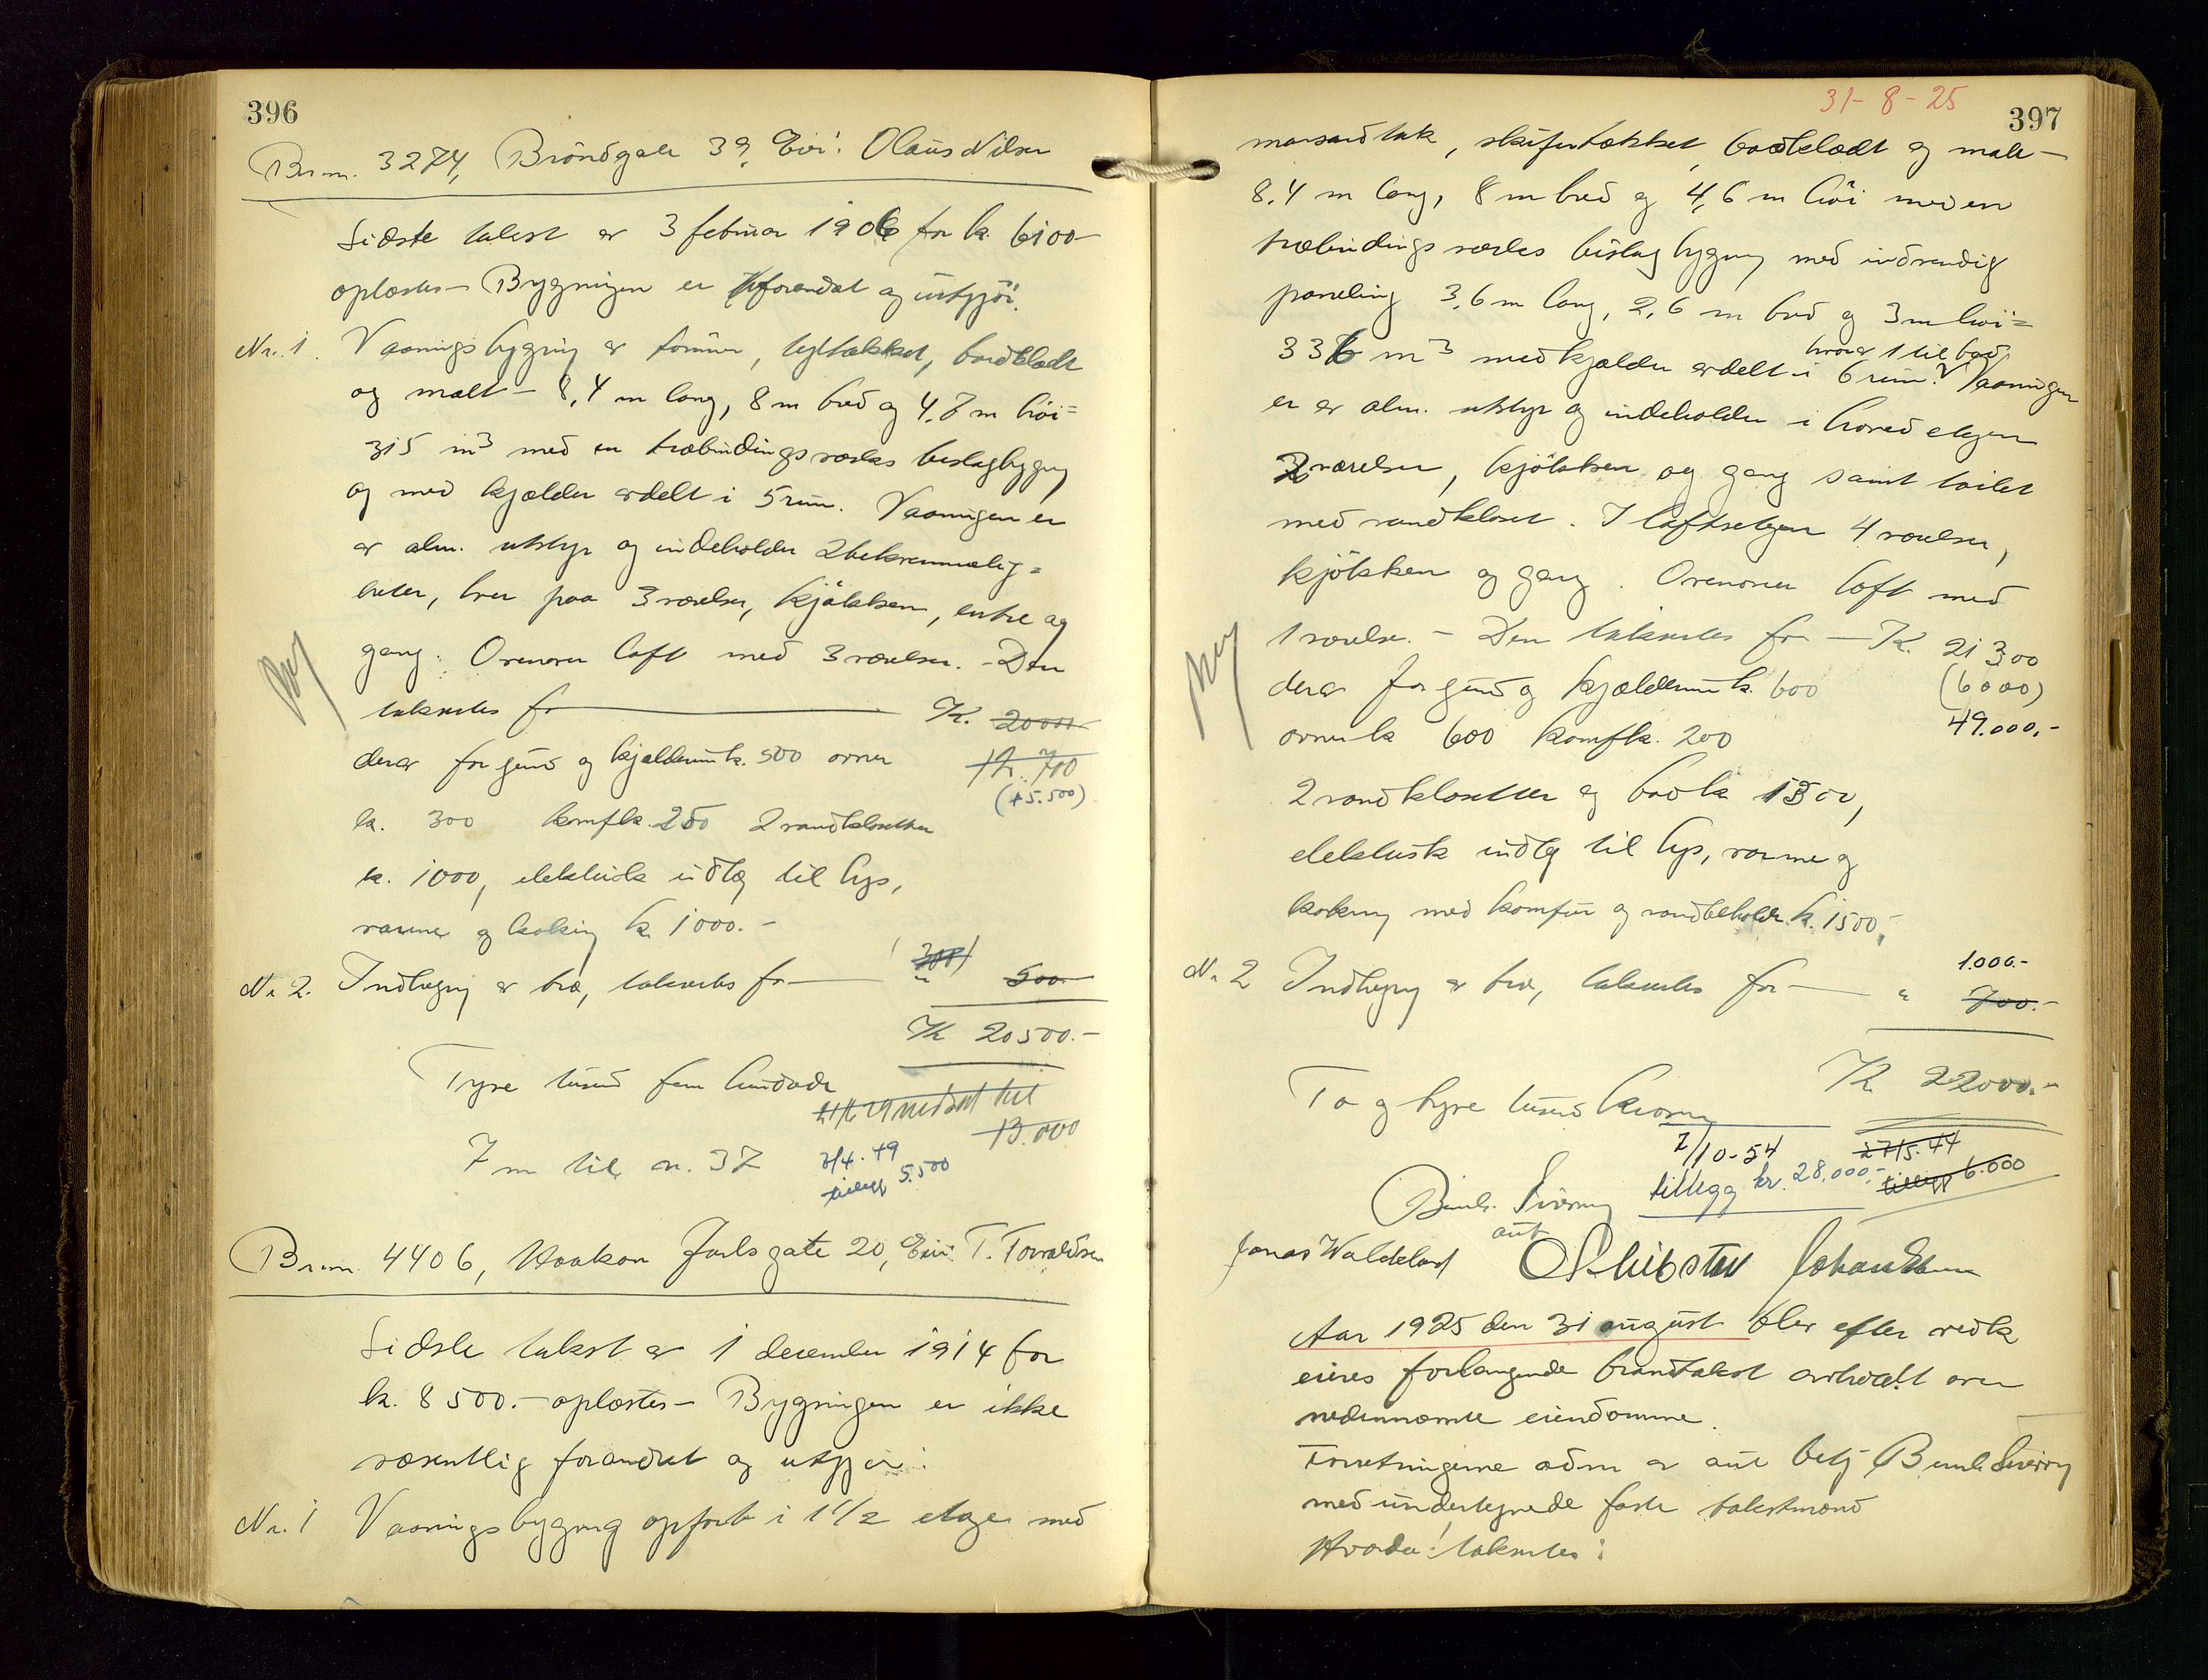 396
Br.nr. 3274, Bröndgate 39, Eier: Olaus Nilsen
Sidste takst er 3 februar 1906 for kr. 6100-
oplæstes - Bygningen er forandret og utgjör:
Nr. 1. Vaaningsbygning av tömmer, tegltækket, bordklædt
og malt - 8,4 m lang, 8 m bred og 4,7 m höi =
315 m3 med en træbindingsverks beslagbygning
og med kjelder avdelt i 5 rum. Vaaningen er
av alm. utstyr og indeholder 2 bekvemmelig=
heter, hver paa 3 værelser, kjökken, entre og
gang. Ovenover loft med 3 værelser. - Den
takseres for K. 20000
derav for grund og kjelderrum k. 500 ovner
12.700
(+5.500)
kr. 300 komfk. 200 2 vandklosetter
kr. 1000, elektrisk indlæg til lys,
varme og koking kr 1000.-
(300)
Nr 2. Indhegning av træ, takseres for " 500
Kr 20500.-
Tyve tusind fem hundrede
nedsat til
13.000
7 m til nr. 37
2/4. 49
tillegg 5.500
Br.nr. 4406, Haakon Jarlsgate 20, Eier: T. Torvaldsen
Sidste takst er 1 december 1914 for
kr. 8500.- oplæstes - Bygningen er ikke
væsentlig forandret og utgjör:
Nr. 1 Vaaningsbygning opfört i 1 1/2 etage med
31-8-25
397
mansardtak, skifertækket, bordklædt og malt -
8,4 m lang, 8 m bred og 4,6 m höi med en
træbindingsverks beslagbygning med indvendig
paneling 3,6 m lang, 2,6 m bred og 3 m höi =
hvorav 1 til bad
336 m3 med kjelder avdelt i 6 rum. Vaaningen
er av alm. utstyr og indeholder i hovedetagen
2 værelser, kjökken og gang samt toilet
med vandkloset. I loftsetagen 4 værelser,
kjökken og gang. Ovenover loft med
1 værelse. - Den takseres for - K. 21300
derav for grund og kjelderrum k. 600 (6000)
ovner k 600 komfk. 200 49.000,-
2 vandklosetter og bad k 1300,
elektrisk indlæg til lys, varme og
koking med komfur og vandbeholder k. 1500,-
1.000.-
Nr 2 Indhegning av træ, takseres for - " 700.-
Kr 22000.-
To og tyve tusind kroner
7/10-54
tillegg kr. 28.000,-
27/5.44
tillegg 6.000
Bernh. Sivertsen
aut
Jonas Waldeland
Aar 1925 den 31 august blev efter vedk
eieres forlangende brandtakst avholdt over
nedennævnte eiendomme.
Forretningerne adm av aut betj Bernh Sivertsen
med undertegnede faste takstmænd
Hvorda: takseres: